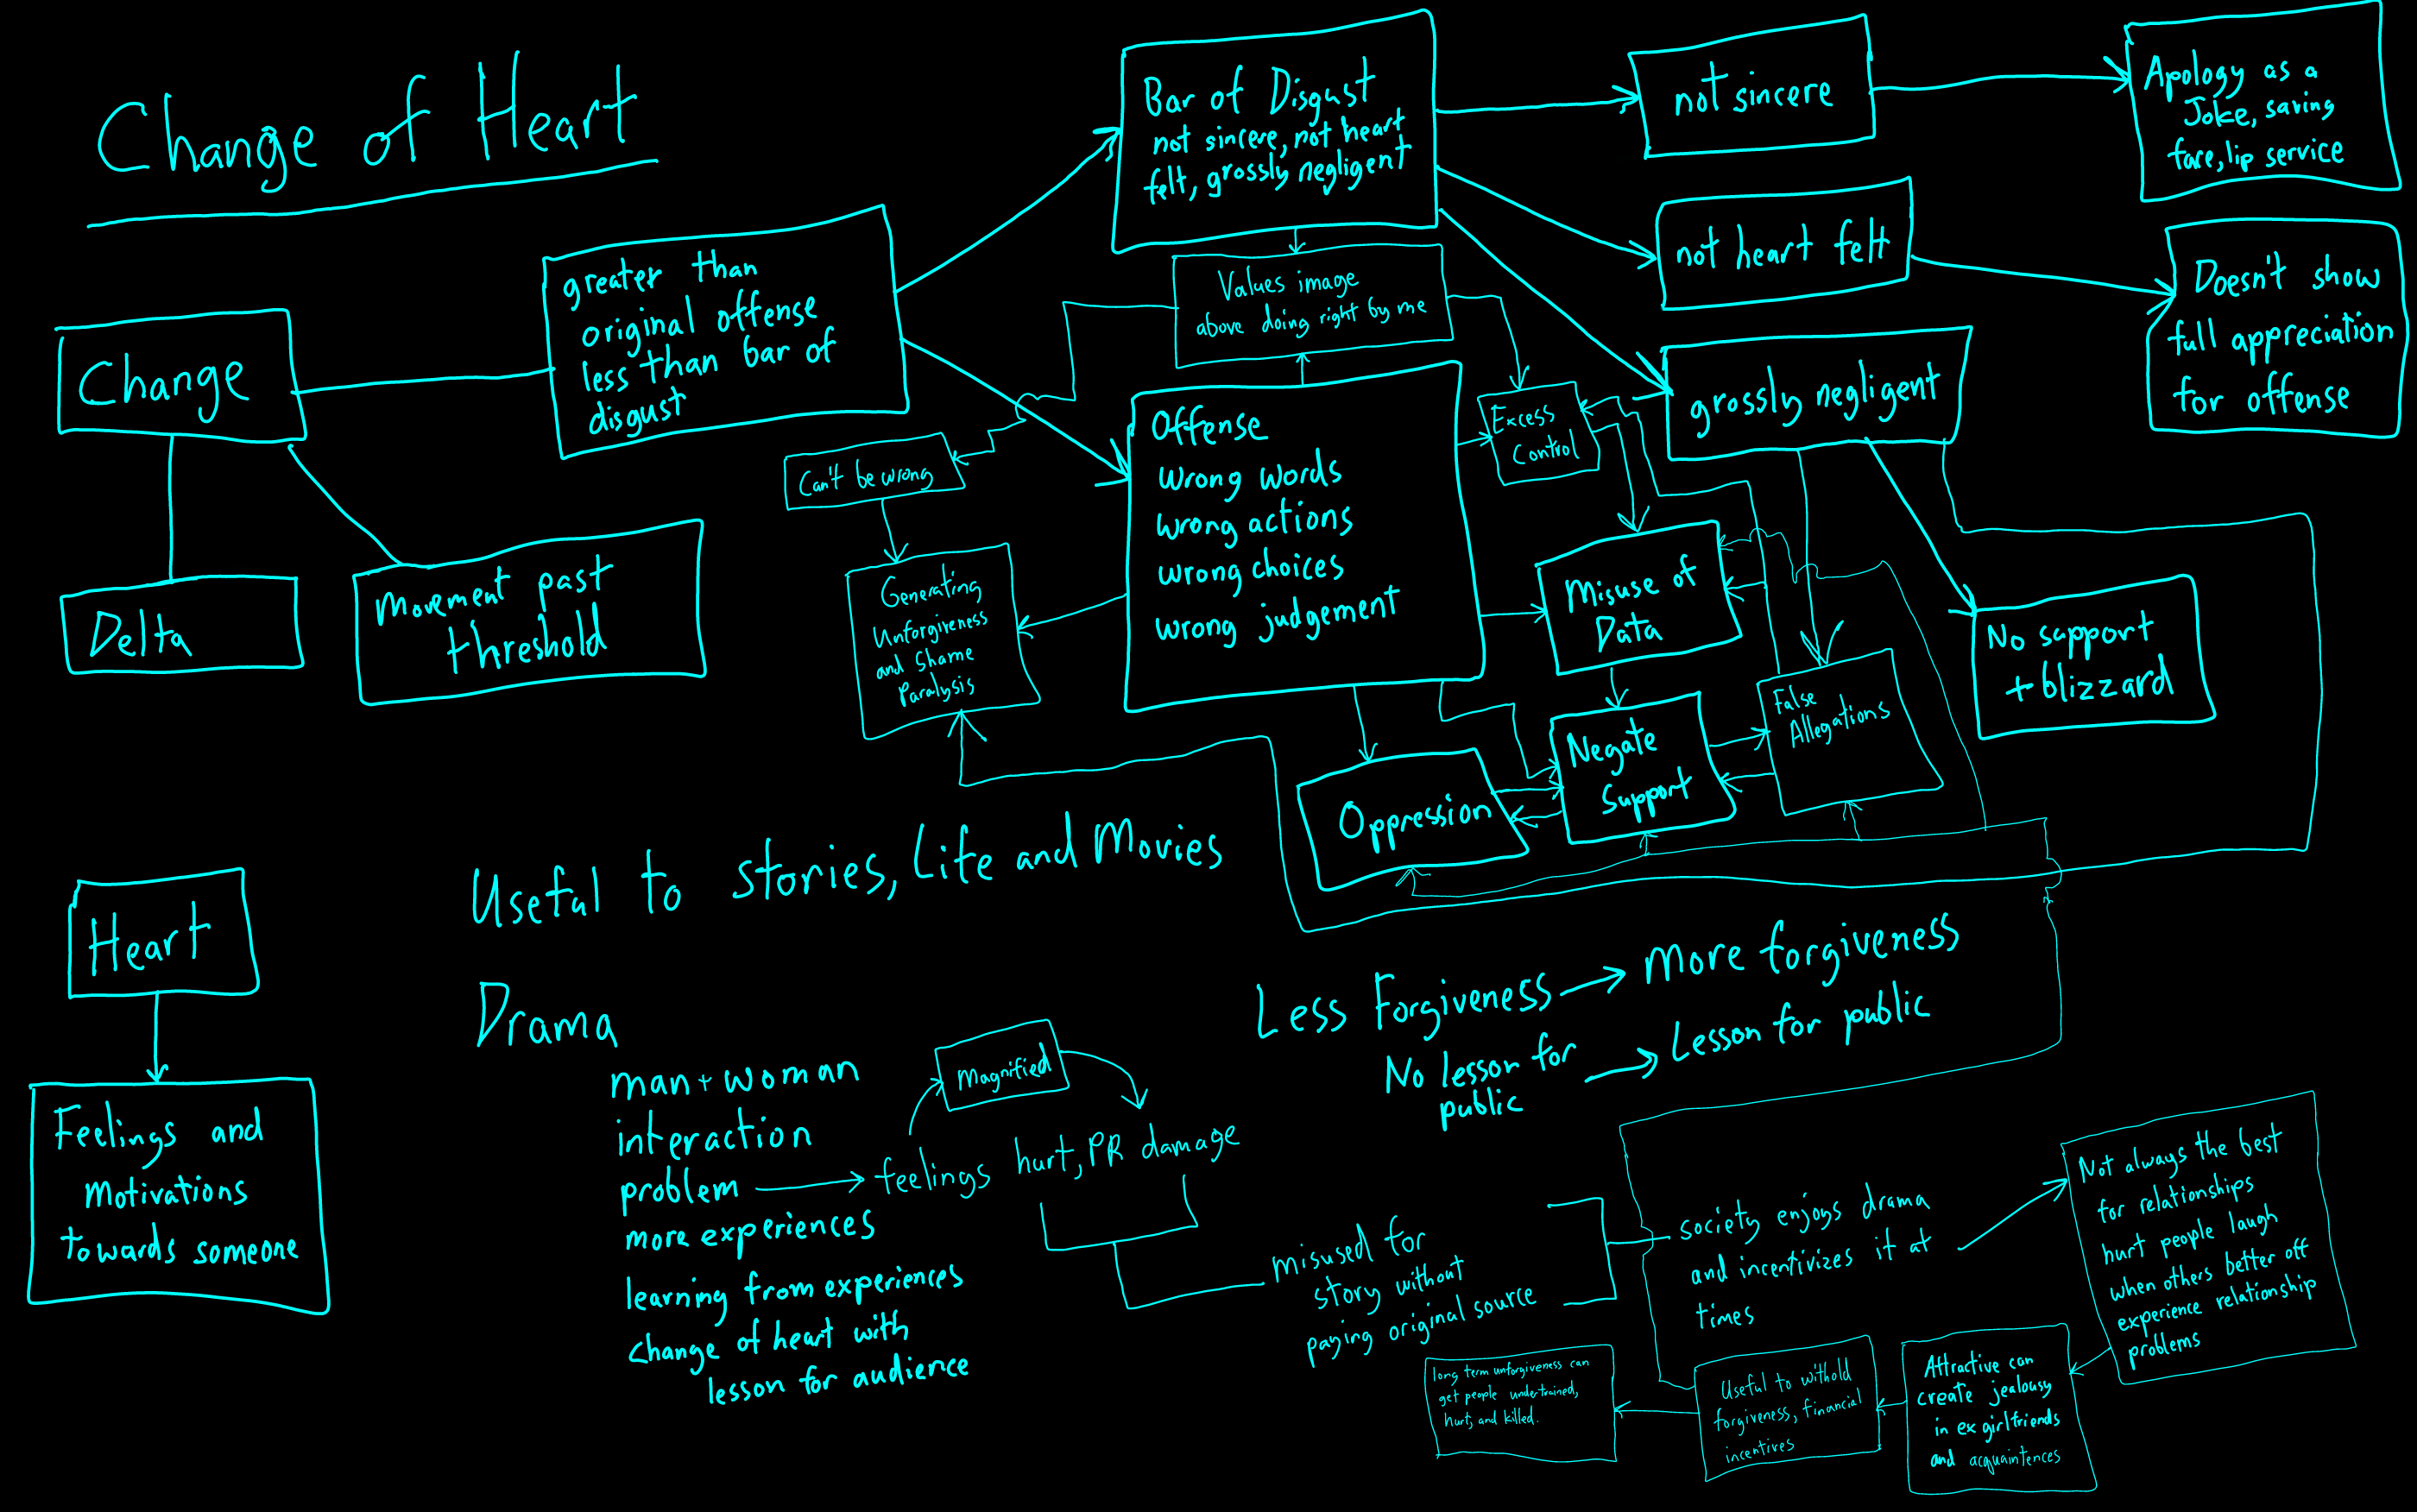 Change of Heart
Change
Delta
Movement past
threshold
greater than
original offense
less than bar of
disgust
Bar of Disgust
not sincere, not heart
felt, grossly negligent
not sincere
Apology as a
Joke, saving
fare, lip service
not heart felt
Doesn't show
full appreciation
for offense
grossly negligent
No support
+ blizzard
Values image
above doing right by me
Can't be wrong
Generating
Unforgiveness
and Shame
Paralysis
Offense
wrong words
wrong actions
wrong choices
wrong judgement
Excess
Control
Misuse of
Data
Negate
Support
False
Allegations
Oppression
Heart
Feelings and
Motivations
towards someone
Useful to stories, Life and Movies
Drama
man + woman
interaction
problem
more experiences
learning from experiences
change of heart with
lesson for audience
Magnified
feelings hurt, PR damage
Less Forgiveness
More forgiveness
No lesson for
public
Lesson for public
misused for
story without
paying original source
society enjoys drama
and incentivizes it at
times
Not always the best
for relationships
hurt people laugh
when others better off
experience relationship
problems
Attractive can
create jealousy
in ex girlfriends
and acquaintences
Useful to withold
forgiveness, financial
incentives
long term unforgiveness can
get people undertrained,
hurt, and killed.